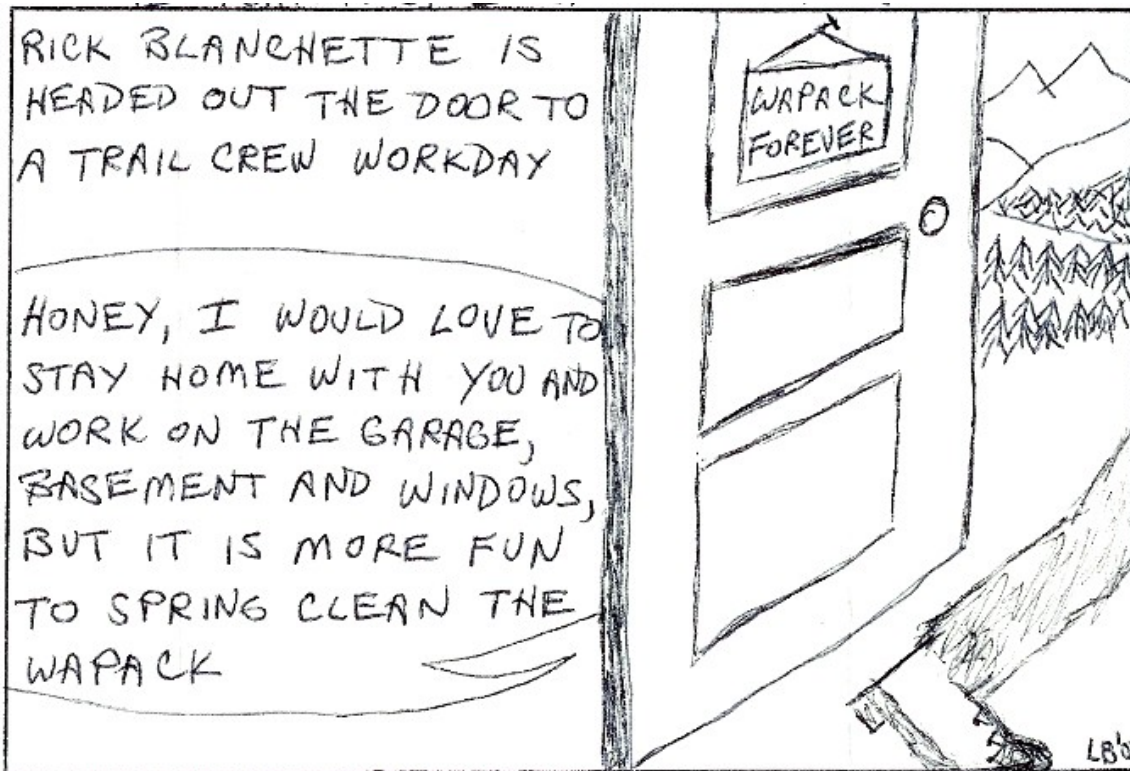 RICK BLANCHETTE IS
HEADED OUT THE DOOR TO
A TRAIL CREW WORKDAY
HONEY, I WOULD LOVE TO
STAY HOME WITH YOU AND
WORK ON THE GARAGE,
BASEMENT AND WINDOWS,
BUT IT IS MORE FUN
TO SPRING CLEAN THE
WAPACK
WAPACK
FOREVER